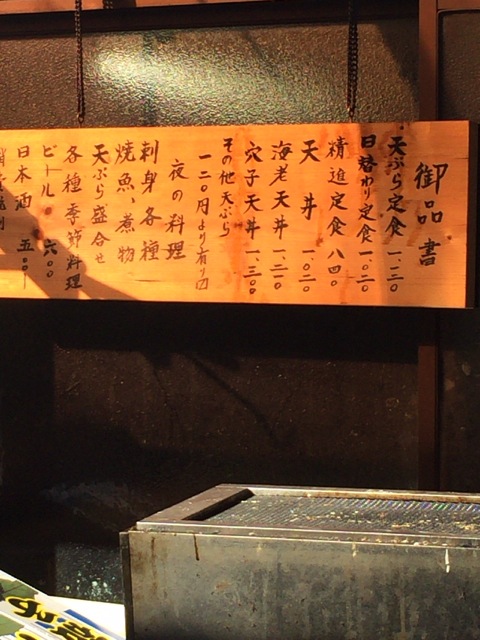 御品書
天ぷら定食 一、一三〇
日替わり定食 一、〇二〇
精進定食 八四〇
天丼 一、〇二〇
海老天丼 一、二二〇
穴子天丼 一、三〇〇
その他天ぷら
一二〇円より有り〼
夜の料理
刺身各種
焼魚、煮物
天ぷら盛合せ
各種季節料理
ビール 六〇〇
日本酒 五〇〇